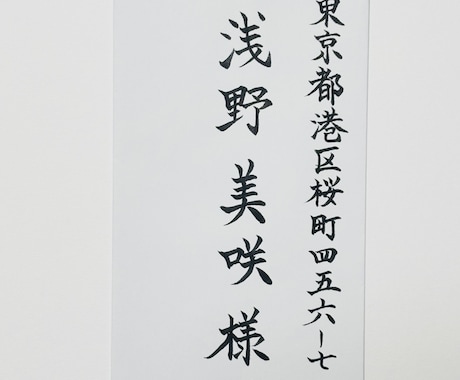 東京都港区桜町四五六ー七
浅野美咲様